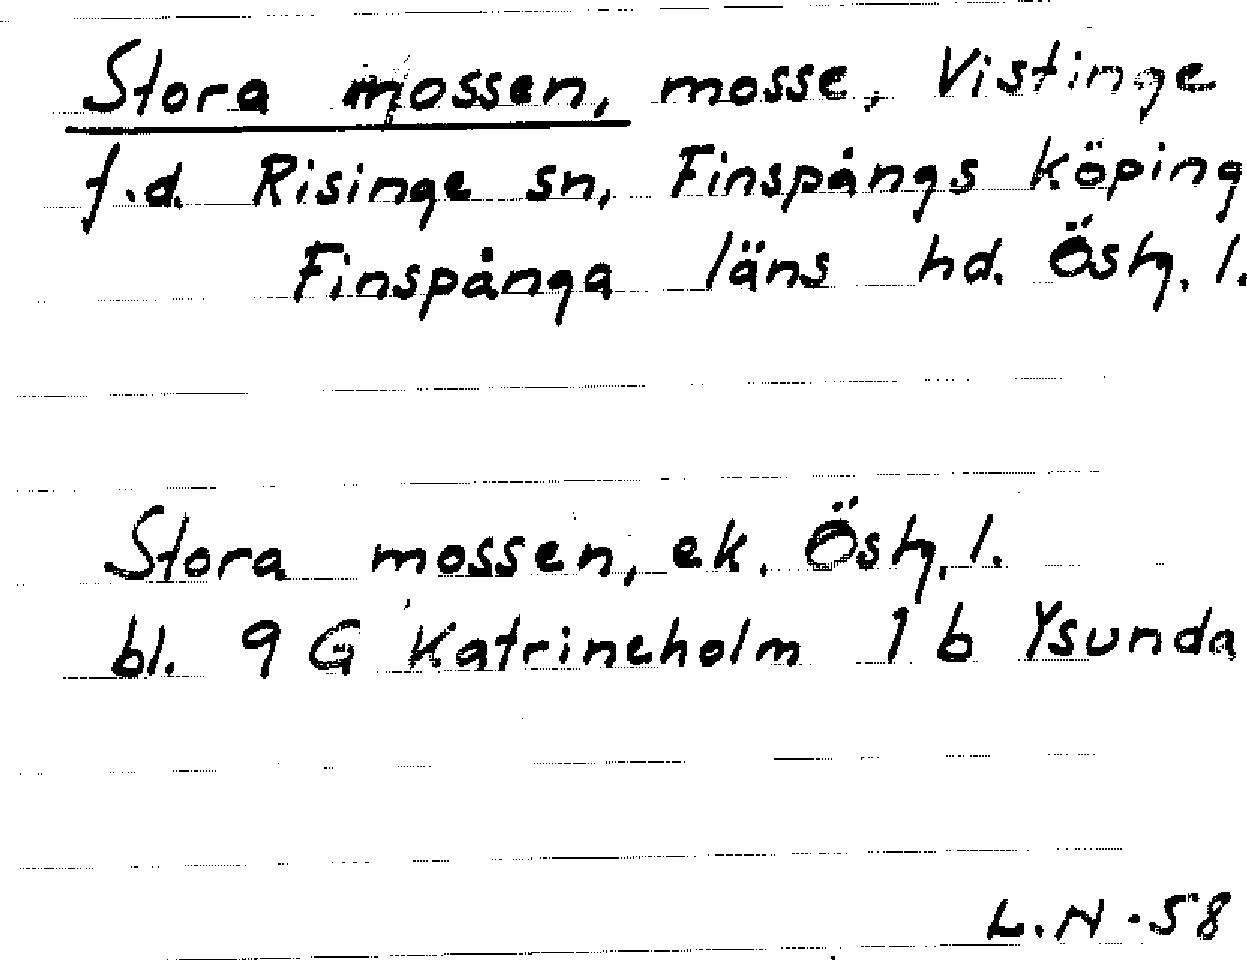 Stora mossen, mosse, Vistinge
f.d. Risinge sn, Finspångs köping
Finspånga läns hd. Östg. l.
Stora mossen, ek. Östg. l.
bl. 9 G Katrineholm 1 b Ysunda
L.N -58